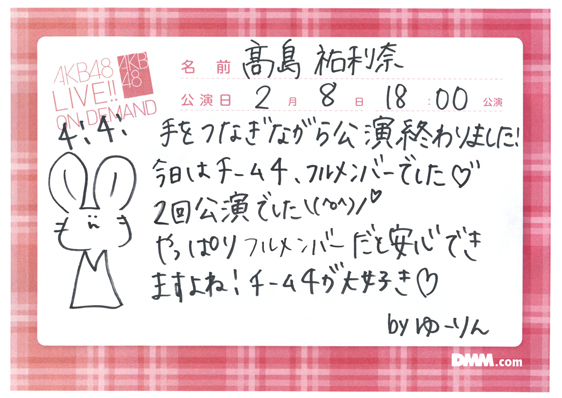 AKB48
LIVE!!
ON DEMAND
AKB
48
名前 髙島 祐利奈
公演日 2月8日 18:00公演
4! 4!
手をつなぎながら公演終わりました!
今日はチーム4、フルメンバーでした♡
2回公演でした\(^o^)/♡
やっぱりフルメンバーだと安心でき
ますよね!チーム4が大好き♡
by ゆーりん
DMM.com